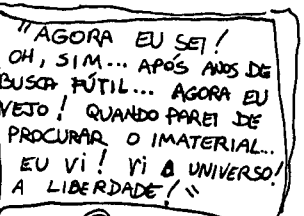 "AGORA EU SEI!
OH, SIM... APÓS ANOS DE
BUSCA FÚTIL... AGORA EU
VEJO! QUANDO PAREI DE
PROCURAR O IMATERIAL...
EU Vi! Vi O UNIVERSO!
A LIBERDADE!"